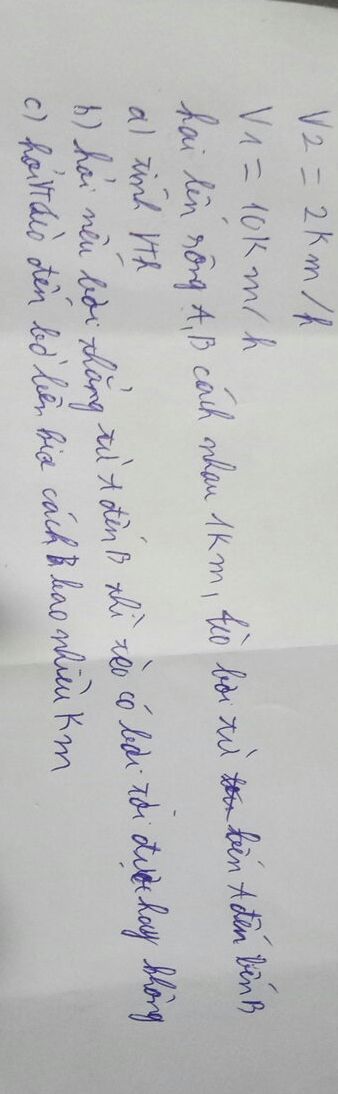 V2 = 2km/h
V1 = 10km/h
hai bên sông A, B cách nhau 1km, tèo bơi từ bến A đến bến B
a) tính Vth
b) hỏi nếu bơi thẳng từ A đến B thì tèo có bơi tới được hay không
c) hỏi tèo đến bờ bên kia cách B bao nhiêu Km